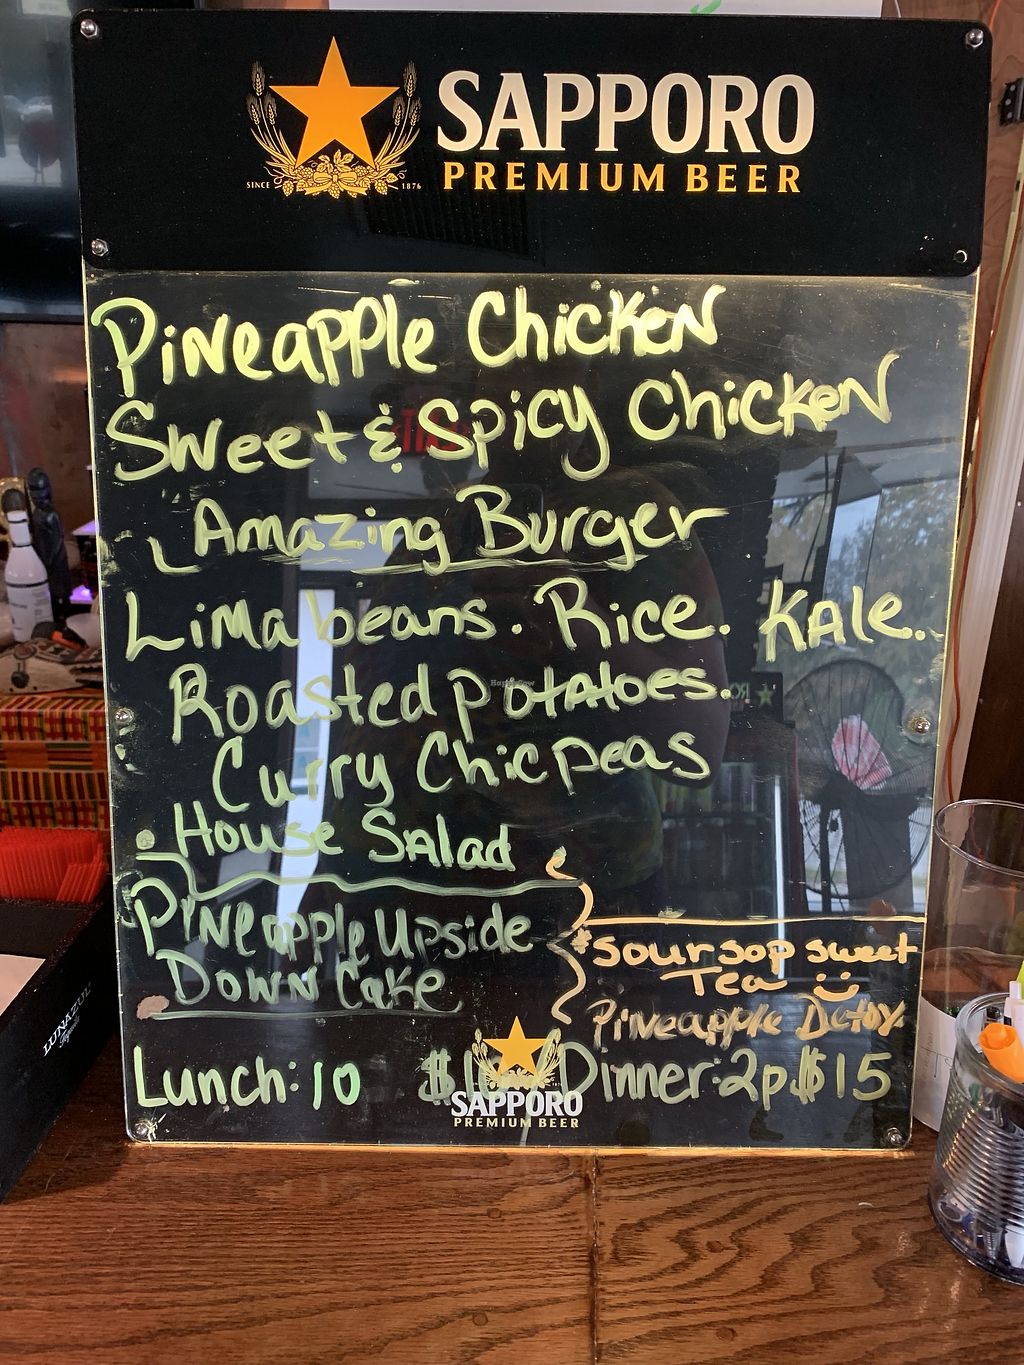 SAPPORO
SINCE 1876 PREMIUM BEER
Pineapple Chicken
Sweet & Spicy Chicken
Amazing Burger
Lima beans. Rice. Kale.
Roasted potatoes.
Curry Chicpeas
House Salad
Pineapple Upside
Down Cake
Soursop sweet
Tea
Pineapple Detox
Lunch: 10 Dinner: 2p $15
SAPPORO
PREMIUM BEER
LUNAZUL
Tequila
HappyCow